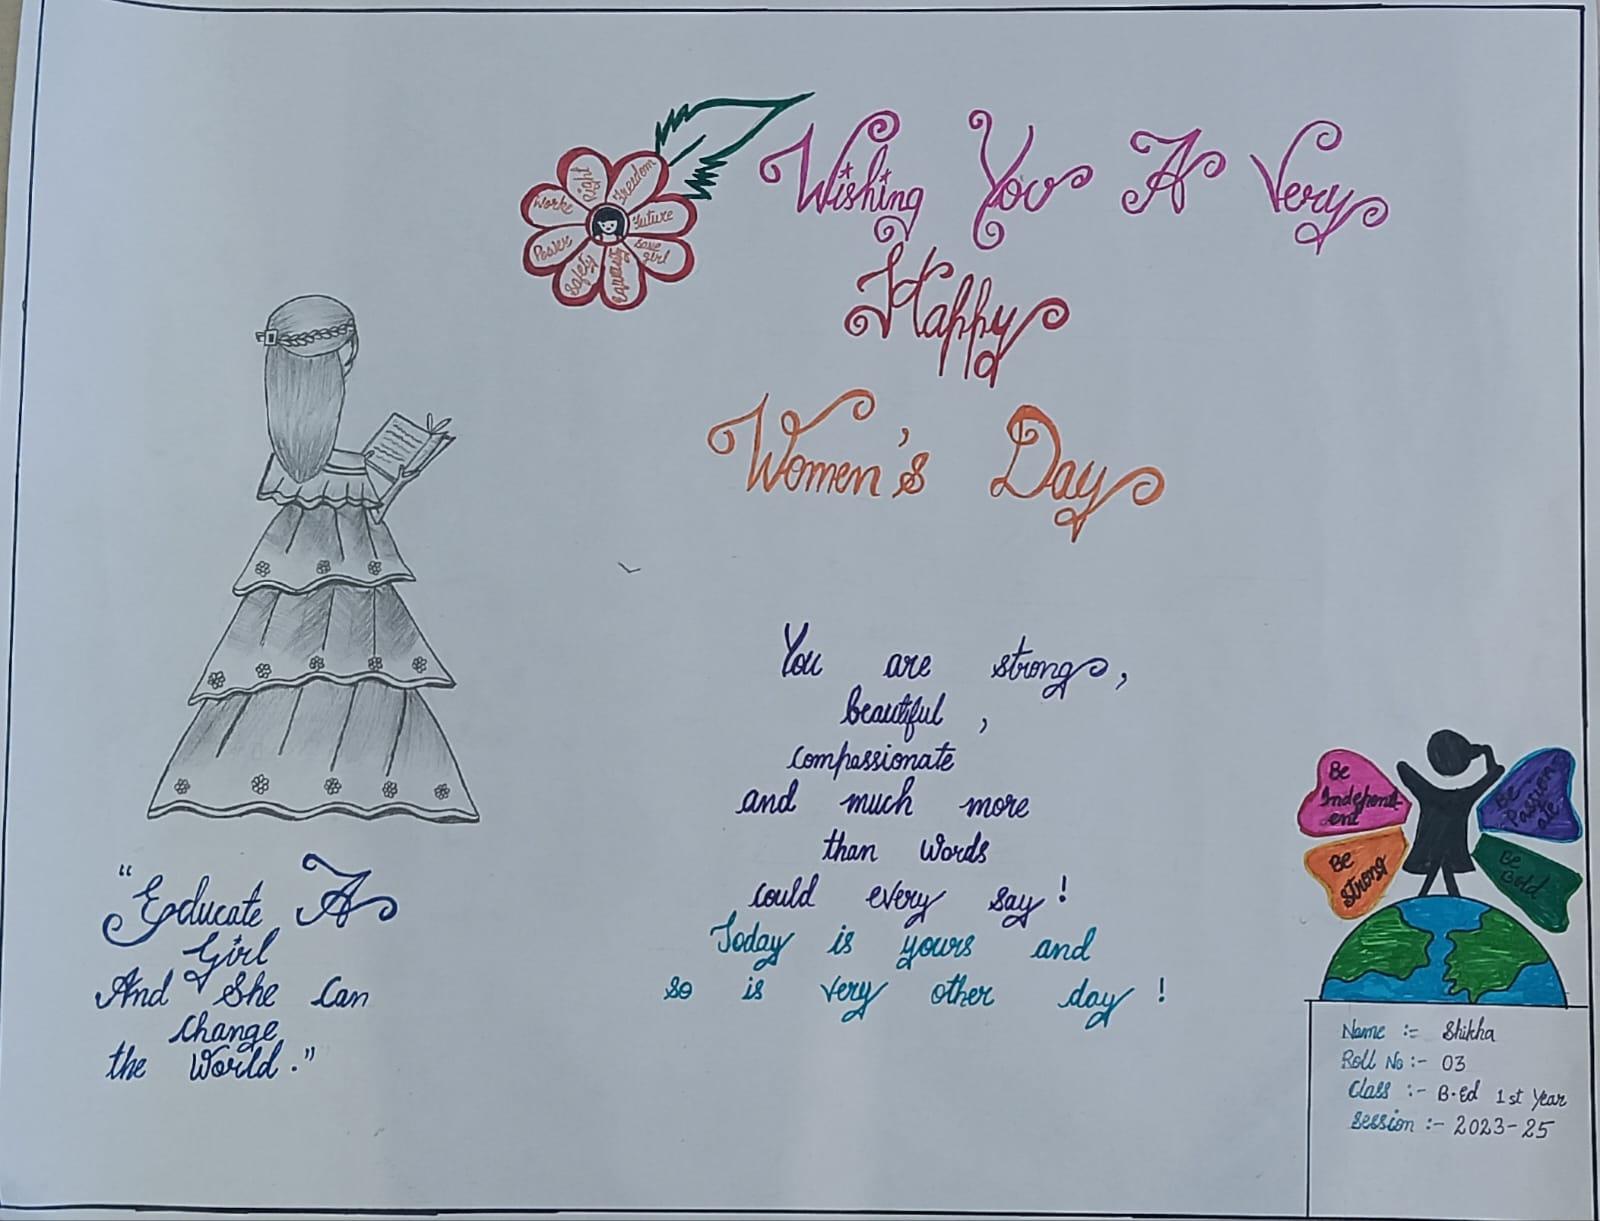 Wishing You A Very
Happy
Women's Day
Right
Freedom
Future
Save
girl
Equality
Safety
Power
Worke
You are strong,
beautiful,
compassionate
and much more
than words
could every say!
Today is yours and
so is very other day!
"Educate A
Girl
And She Can
change
the World."
Be
Independ
ent
Be
Passion
ate
Be
Strong
Be
Bold
Name :- Shikha
Roll No :- 03
Class :- B.Ed 1st Year
Session :- 2023-25